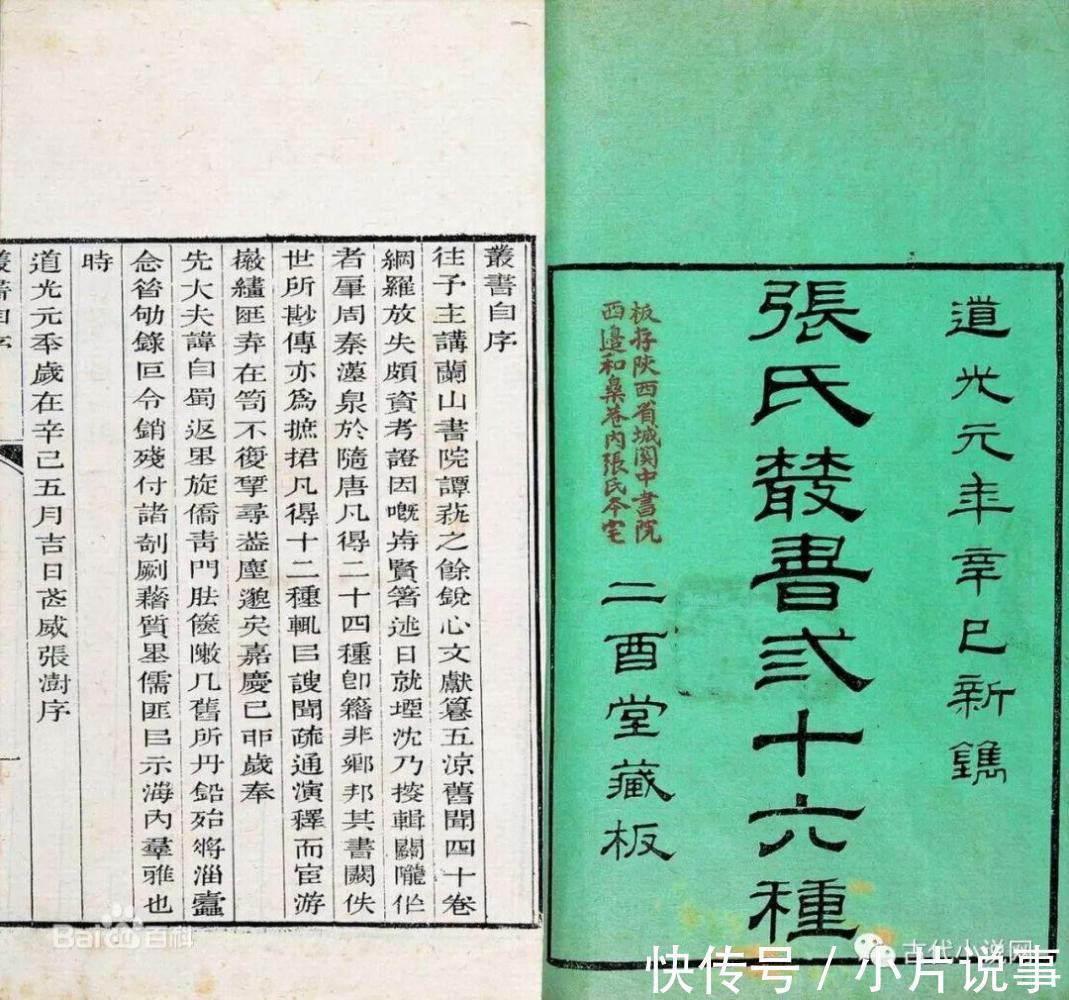 道光元年辛巳新鐫
張氏叢書弎十六種
板存陝西省城関中書院
西邊和桑巷內張氏本宅
二酉堂藏板
叢書自序
往予主講蘭山書院譚蓺之餘銳心文獻纂五涼舊聞四十卷
網羅放失頗資考證因嘅歬賢箸述日就堙沈乃捘輯關隴作
者畢周秦漢泉於隨唐凡得二十四種卽籍非鄉邦其書闕佚
世所尠傳亦為摭捃凡得十二種輒㠯謏聞疏通演釋而宦游
嶶繣匪弆在笥不復揅尋盩塵邈矣嘉慶己卯歲奉
先大夫諱自蜀返里旋僑靑門胠篋敶几舊所丹鉛殆將湽蠹
念昝劬錄叵令銷殘付諸剞劂藉質里儒匪㠯示海內羣雅也
時
道光元秊歲在辛巳五月吉日武威張澍序
叢書自序
一
Baidu百科
古代小说网
快传号 / 小片说事